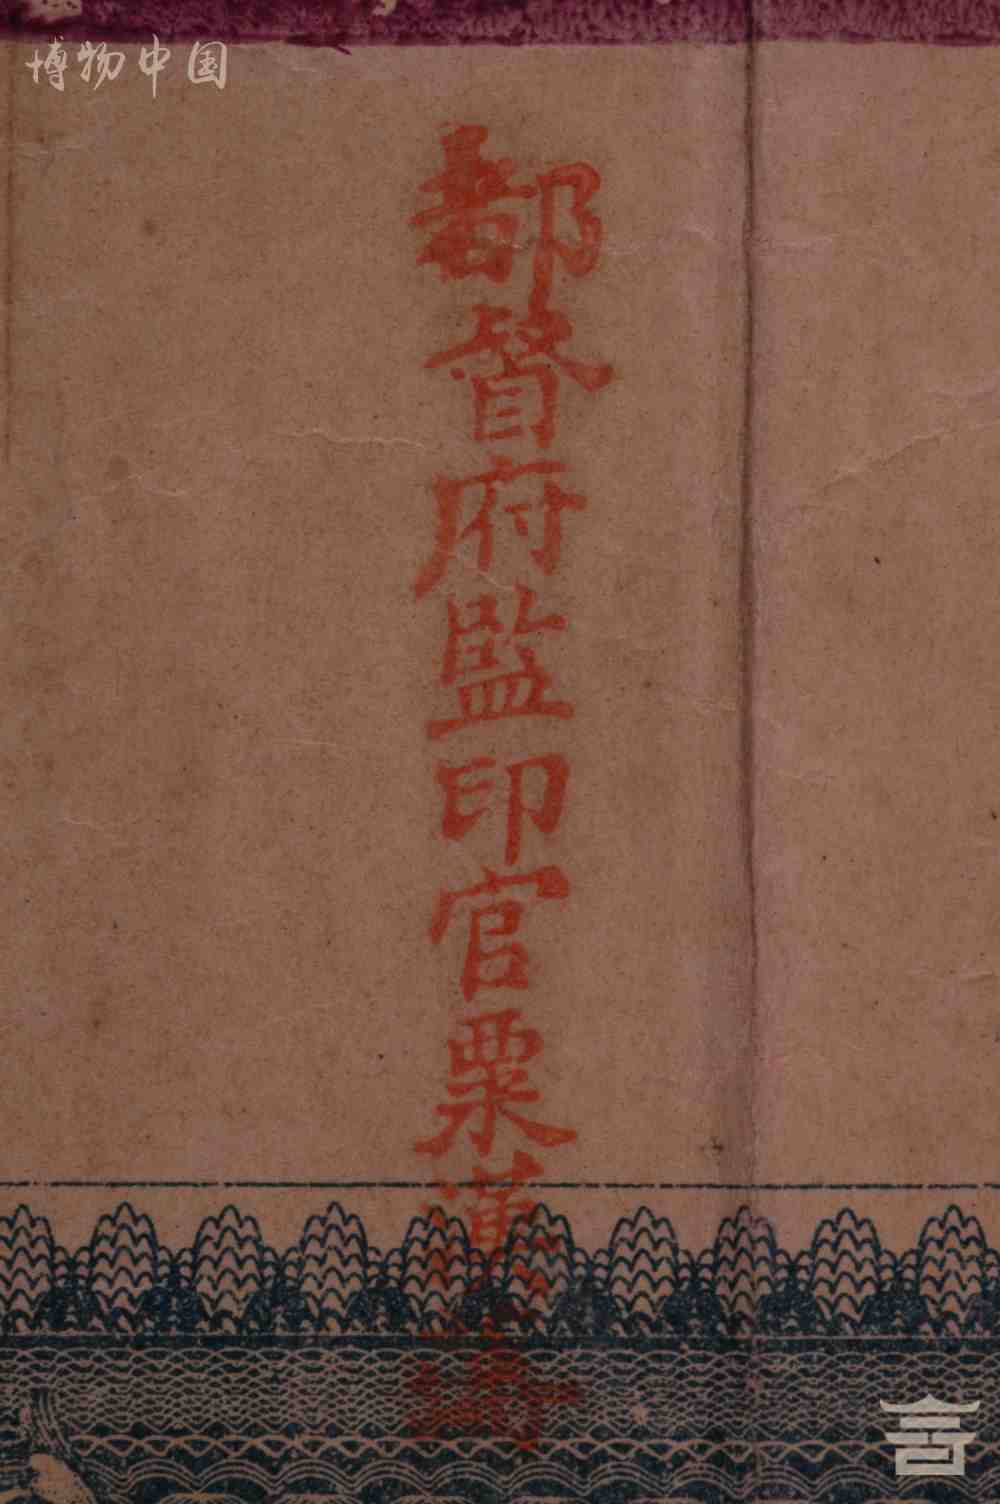 博物中国
都督府監印官粟漢